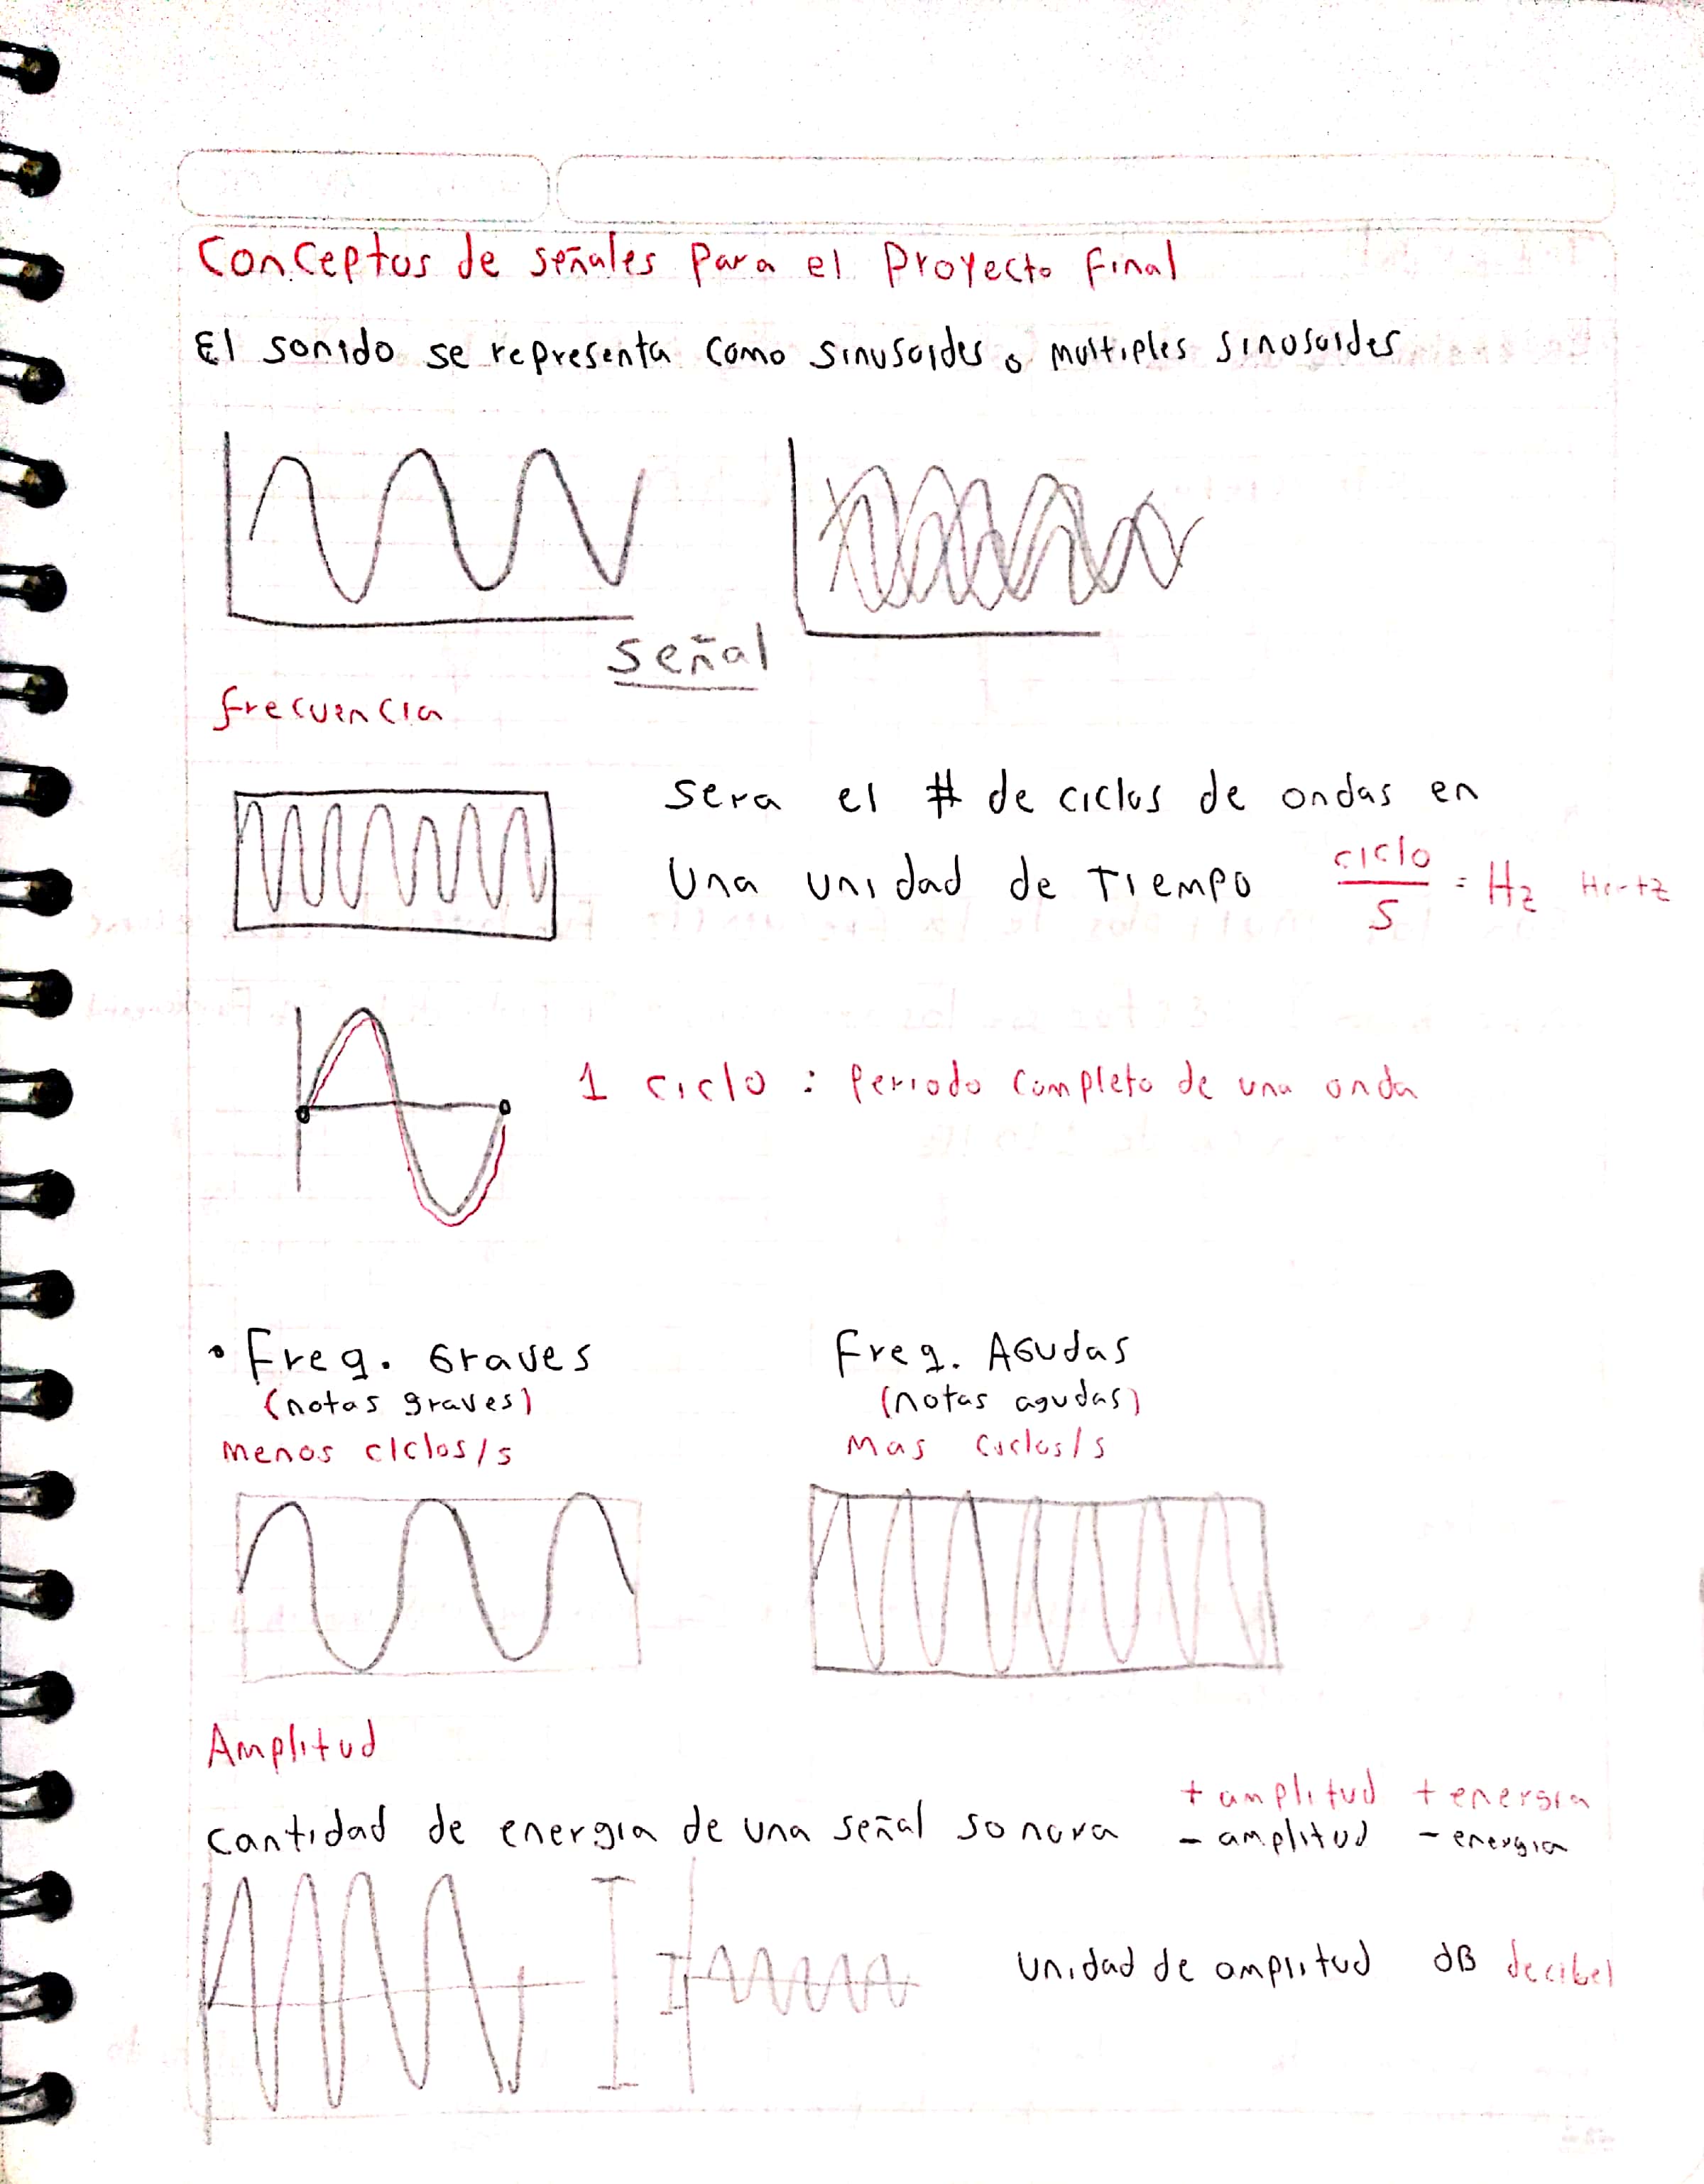 Conceptos de señales para el Proyecto final
El sonido se representa como sinusoides o multiples sinusoides
señal
frecuencia
sera el # de ciclos de ondas en
una unidad de Tiempo ciclo/s = Hz Hertz
1 ciclo : Periodo completo de una onda
• Freq. Graves
(notas graves)
menos ciclos/s
Freq. Agudas
(notas agudas)
Mas ciclos/s
Amplitud
cantidad de energia de una señal sonora
+ amplitud + energia
- amplitud - energia
unidad de amplitud dB decibel